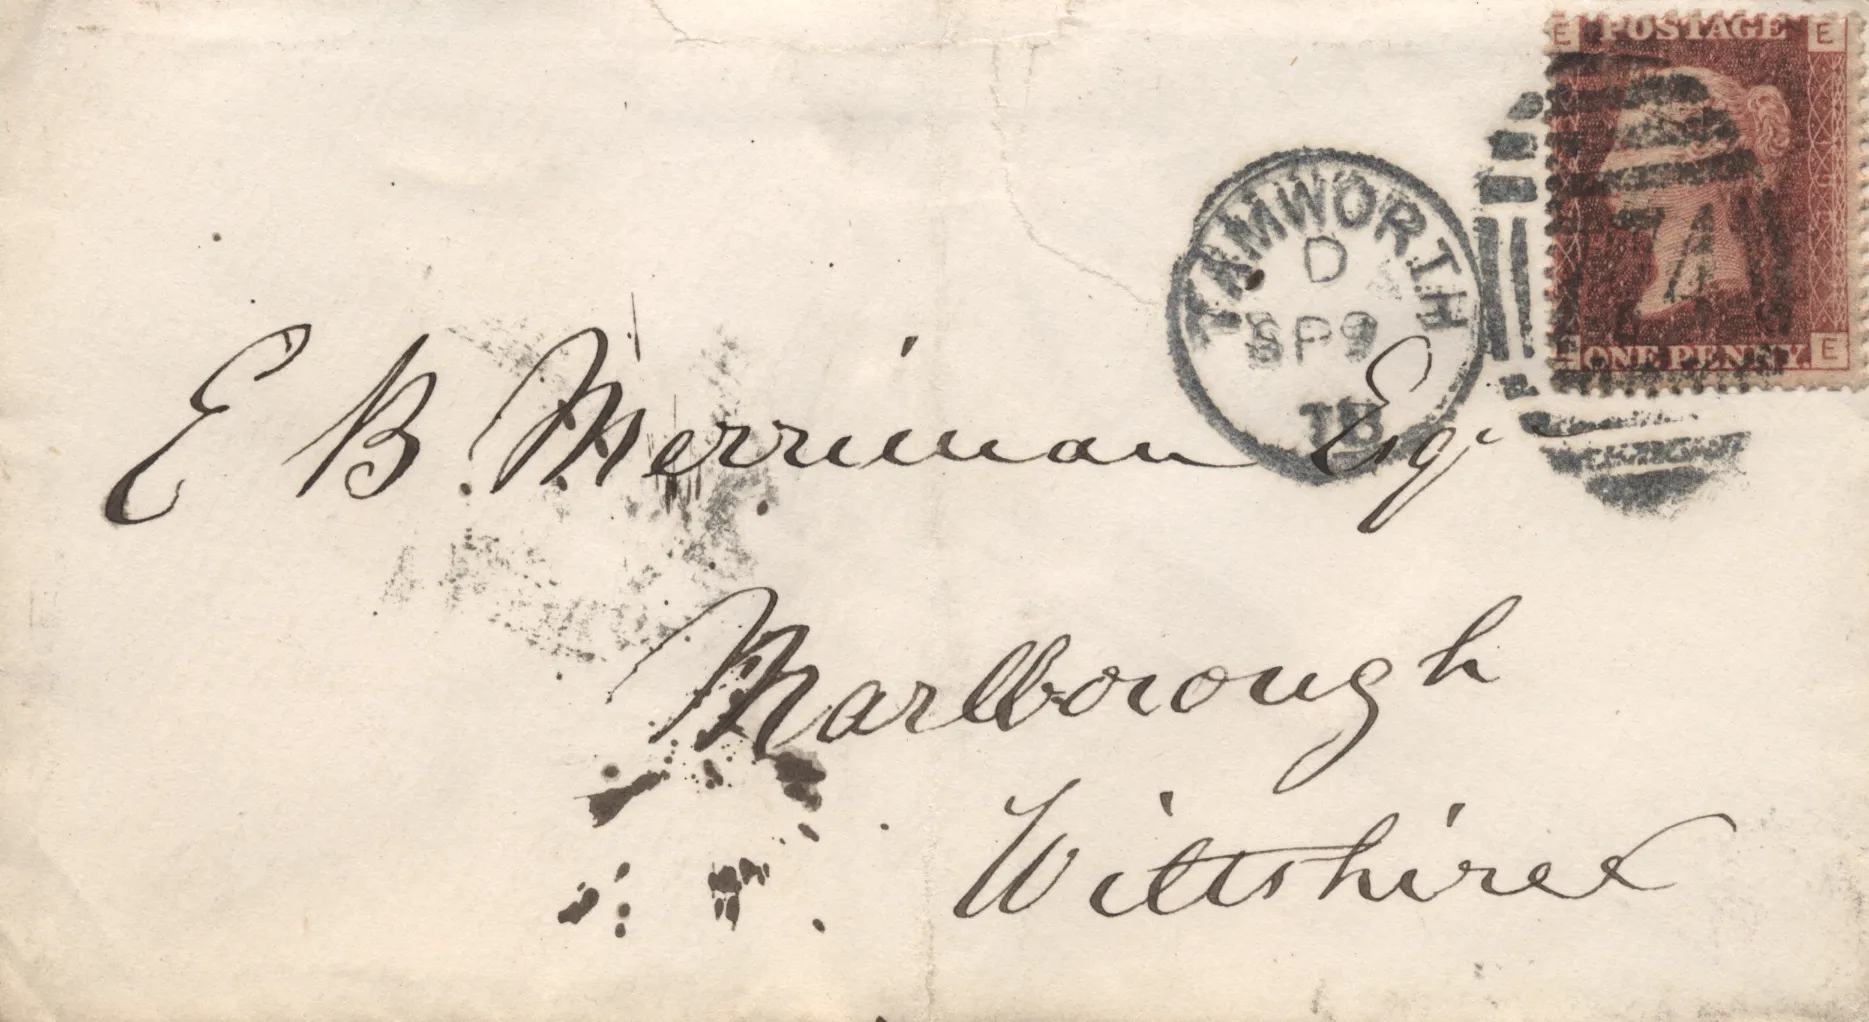 E POSTAGE E
TAMWORTH
D A
SP 9
78
ONE PENNY. E
E B Merriman Esqr
Marlborough
Wiltshire